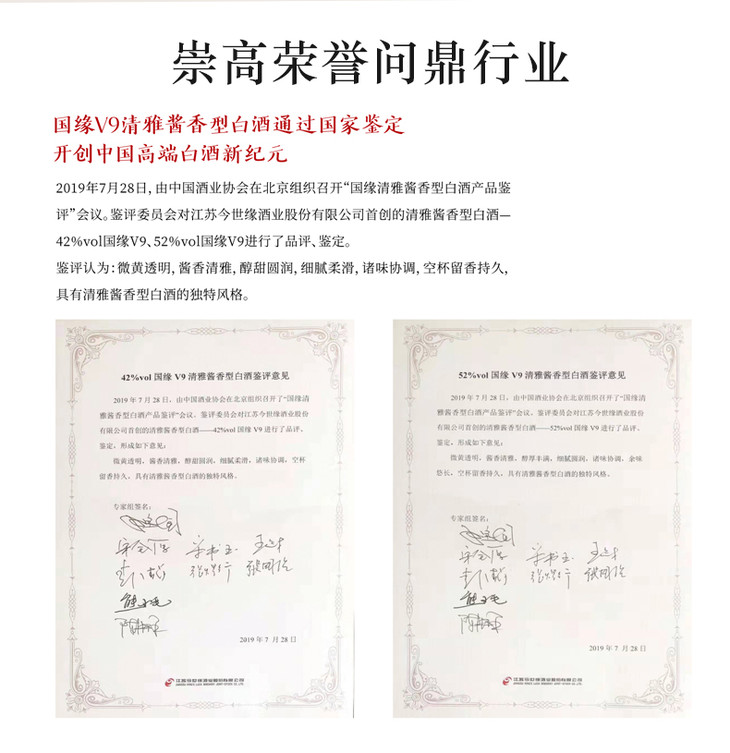 崇高荣誉问鼎行业
国缘V9清雅酱香型白酒通过国家鉴定
开创中国高端白酒新纪元
2019年7月28日，由中国酒业协会在北京组织召开“国缘清雅酱香型白酒产品鉴
评”会议。鉴评委员会对江苏今世缘酒业股份有限公司首创的清雅酱香型白酒—
42%vol国缘V9、52%vol国缘V9进行了品评、鉴定。
鉴评认为：微黄透明，酱香清雅，醇甜圆润，细腻柔滑，诸味协调，空杯留香持久，
具有清雅酱香型白酒的独特风格。
42%vol 国缘 V9 清雅酱香型白酒鉴评意见
2019 年 7 月 28 日，由中国酒业协会在北京组织召开了“国缘清
雅酱香型白酒产品鉴评”会议。鉴评委员会对江苏今世缘酒业股份
有限公司首创的清雅酱香型白酒——42%vol 国缘 V9 进行了品评、
鉴定，形成如下意见：
微黄透明，酱香清雅，醇甜圆润，细腻柔滑，诸味协调，空杯
留香持久，具有清雅酱香型白酒的独特风格。
专家组签名：
2019 年 7 月 28 日
江苏今世缘酒业股份有限公司
52%vol 国缘 V9 清雅酱香型白酒鉴评意见
2019 年 7 月 28 日，由中国酒业协会在北京组织召开了“国缘清
雅酱香型白酒产品鉴评”会议。鉴评委员会对江苏今世缘酒业股份
有限公司首创的清雅酱香型白酒——52%vol 国缘 V9 进行了品评、
鉴定，形成如下意见：
微黄透明，酱香清雅，醇厚丰满，细腻圆润，诸味协调，余味
悠长，空杯留香持久，具有清雅酱香型白酒的独特风格。
专家组签名：
2019 年 7 月 28 日
江苏今世缘酒业股份有限公司